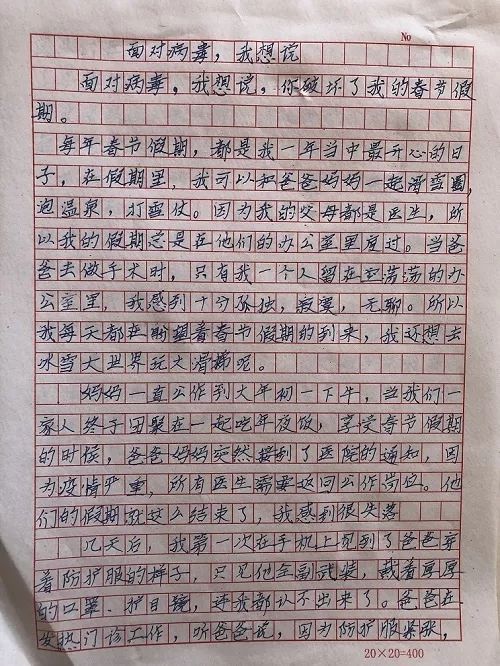 No
面对病毒，我想说
面对病毒，我想说，你破坏了我的春节假
期。
每年春节假期，都是我一年当中最开心的日
子，在假期里，我可以和爸爸妈妈一起滑雪圈，
泡温泉，打雪仗。因为我的父母都是医生，所
以我的假期总是在他们的办公室里度过。当爸
爸去做手术时，只有我一个人留在空荡荡的办
公室里，我感到十分孤独，寂寞，无聊。所以
我每天都在期望着春节假期的到来，我还想去
冰雪大世界玩大滑梯呢。
妈妈一直公作到大年初一下午，当我们一
家人终于团聚在一起吃年夜饭，享受春节假期
的时候，爸爸妈妈突然接到了医院的通知，因
为疫情严重，所有医生需要返回公作岗位。他
们的假期就这么结束了，我感到很失落
几天后，我第一次在手机上见到了爸爸穿
着防护服的样子，只见他全副武装，戴着厚厚
的口罩、护目镜，连我都认不出来了。爸爸在
发热门诊工作，听爸爸说，因为防护服紧张，
20×20=400